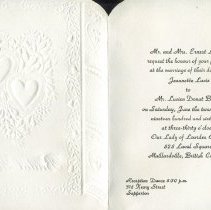 Mr. and Mrs. Ernest
request the honour of your
at the marriage of their
Jeannette Lucie
to
Mr. Lucien Donat
on Saturday, June the
nineteen hundred and
at three-thirty o'clock
Our Lady of Lourdes
828 Laval Square
Maillardville, British
Reception Dance 8:30 p.m.
Henry Street
Sapperton